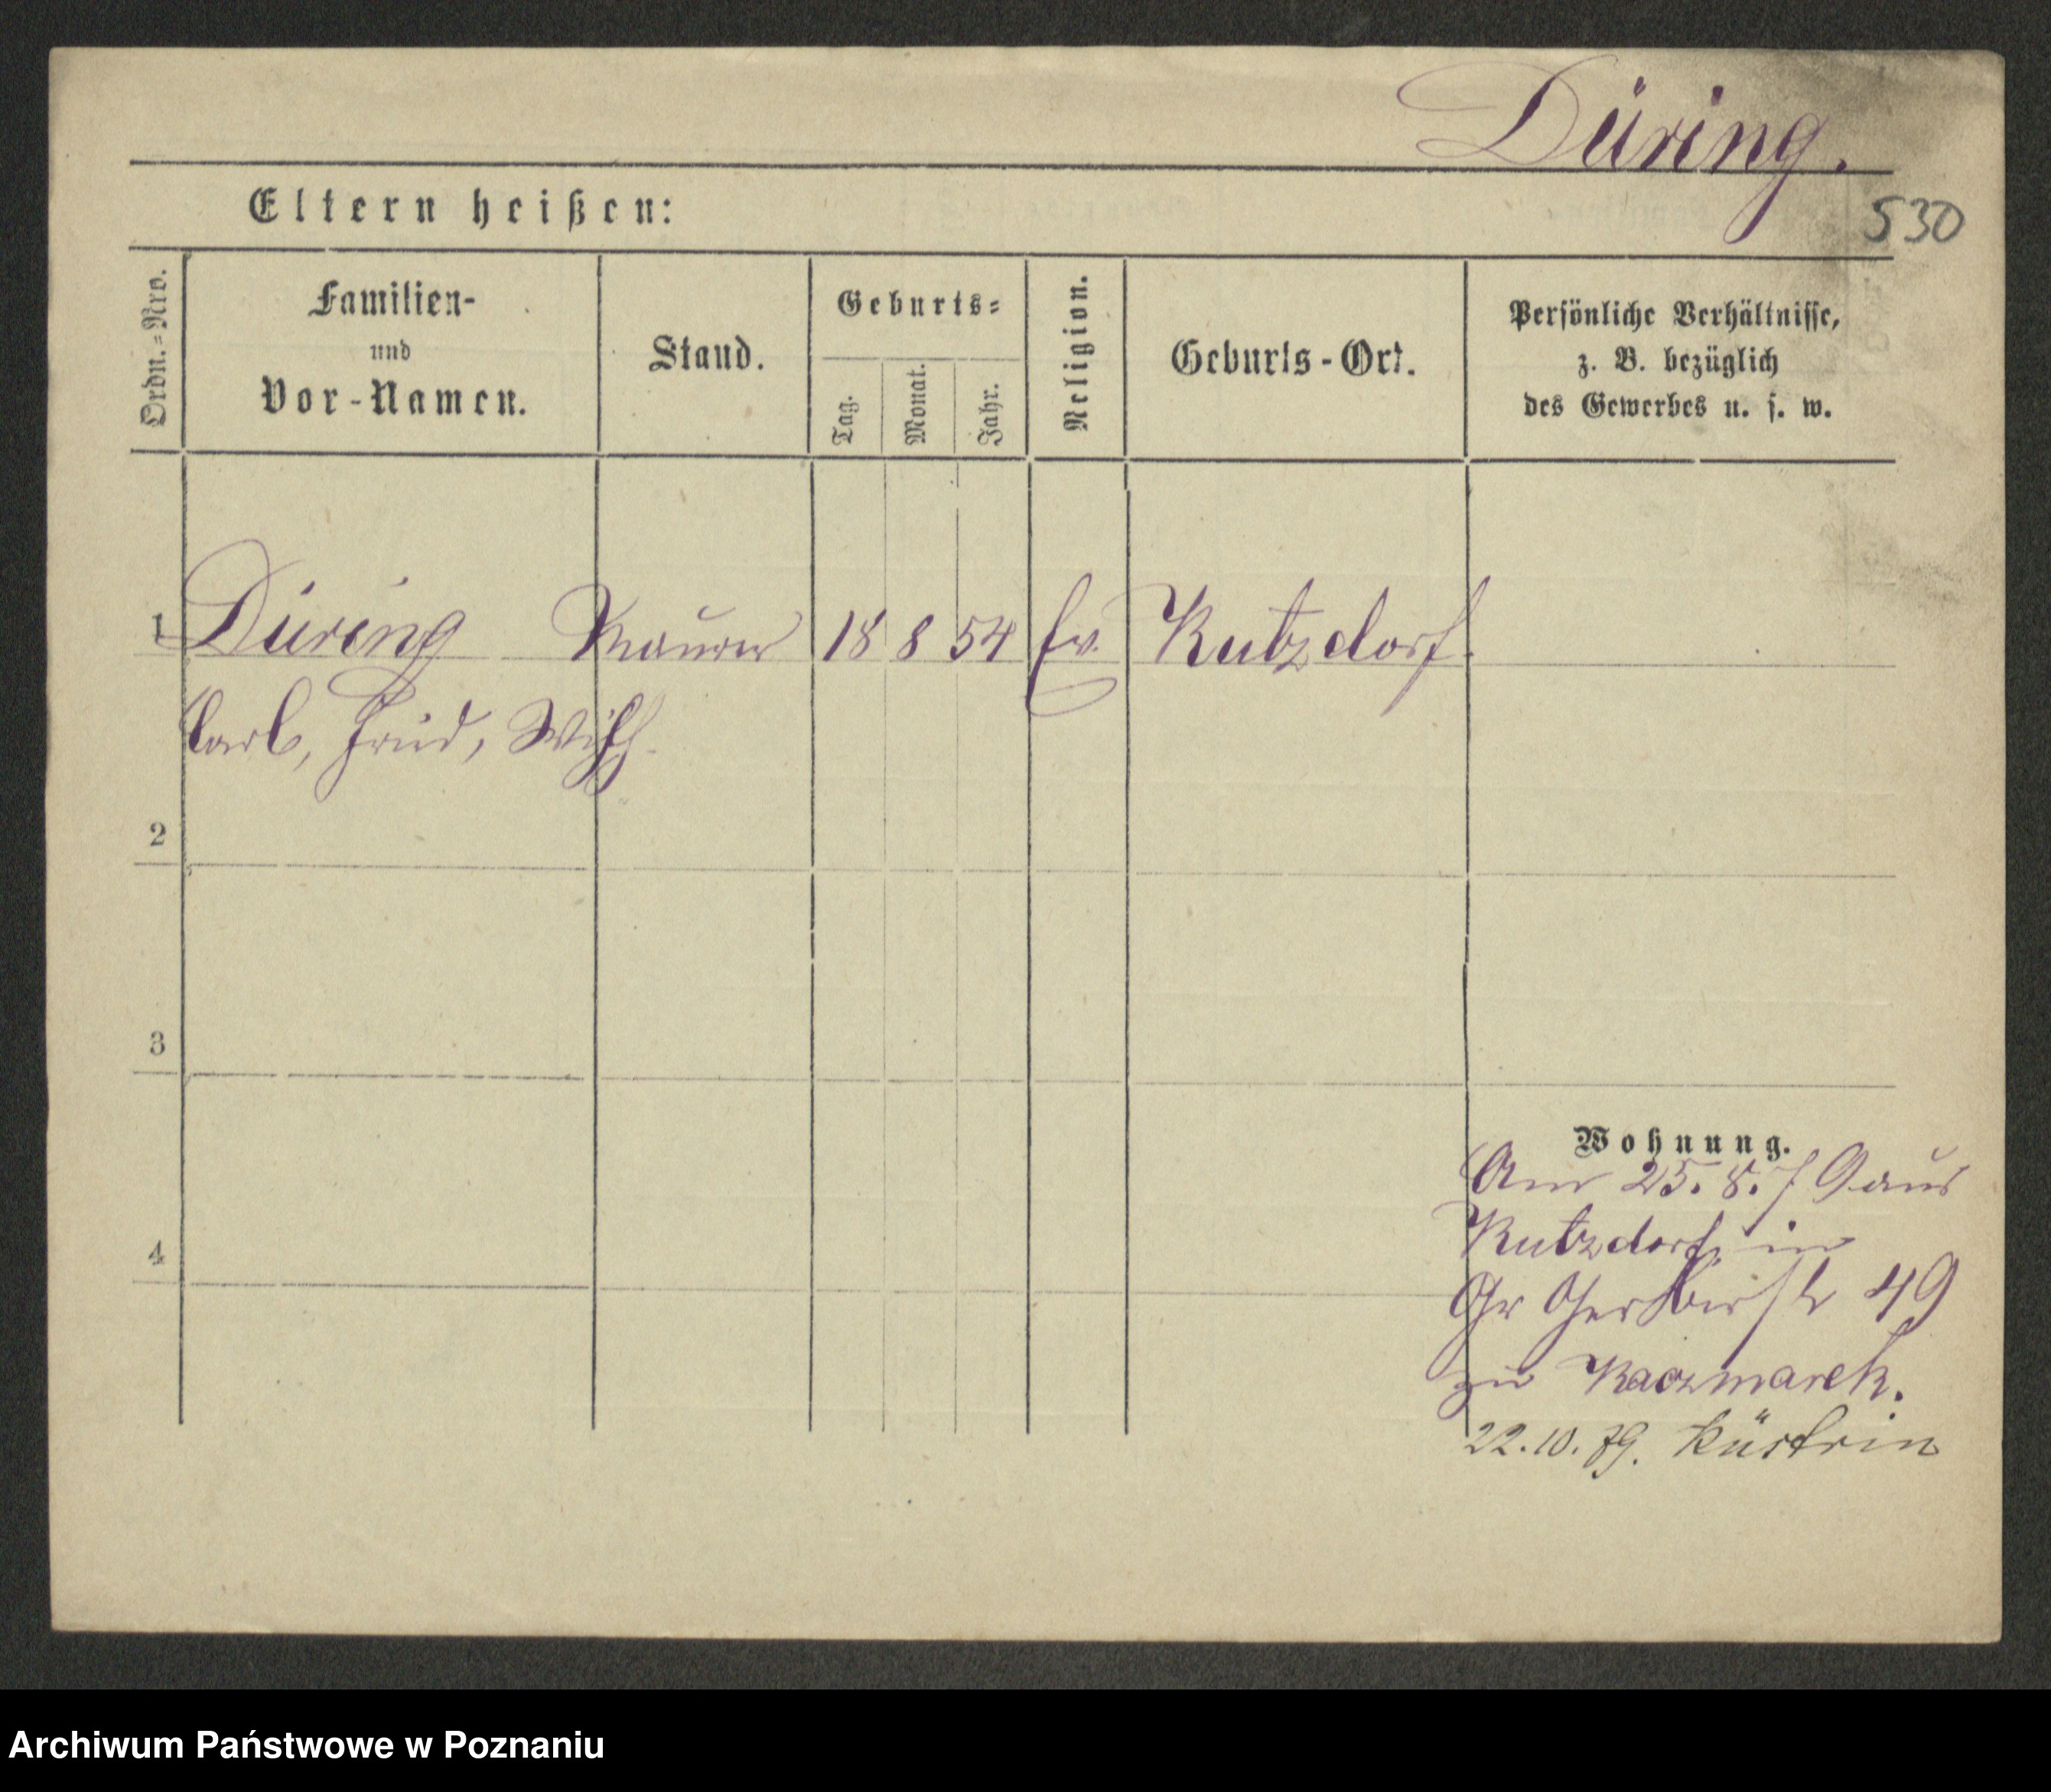 Düring.
530
Eltern heißen:
Ordn.-Nro.
Familien-
und
Vor-Namen.
Stand.
Geburts-
Tag.
Monat.
Jahr.
Religion.
Geburts-Ort.
Persönliche Verhältnisse,
z. B. bezüglich
des Gewerbes u. s. w.
1 Düring Maurer 18 8 54 Ev. Kutzdorf.
Carl, Fried, Wilh.
2
3
4
Wohnung.
Am 25. 8. 79 aus
Kutzdorf, in
Gr Gerberstr 49
zu Kaczmarek.
22.10.79. Küstrin
Archiwum Państwowe w Poznaniu